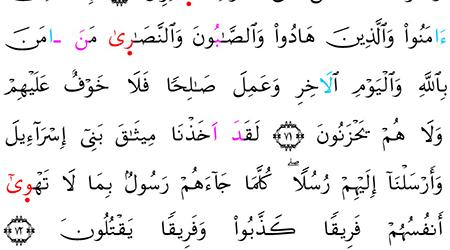 ءَامَنُواْ وَالَّذِينَ هَادُواْ وَالصَّٰبُونَ وَالنَّصَٰرِىٰ مَنَ ـَامَنَ
بِاللَّهِ وَالْيَوْمِ اِلَاخِرِ وَعَمِلَ صَٰلِحًا فَلَا خَوْفٌ عَلَيْهِمْ
وَلَا هُمْ يَحْزَنُونَ ۝٧١ لَقَدَ اَخَذْنَا مِيثَٰقَ بَنِىٓ إِسْرَآءِيلَ
وَأَرْسَلْنَآ إِلَيْهِمْ رُسُلًاۖ كُلَّمَا جَآءَهُمْ رَسُولُۢ بِمَا لَا تَهْوِىٰٓ
أَنفُسُهُمْ فَرِيقًا كَذَّبُواْ وَفَرِيقًا يَقْتُلُونَ ۝٧٢